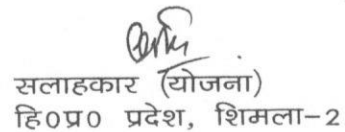 सलाहकार (योजना)
हि0प्र0 प्रदेश, शिमला-2